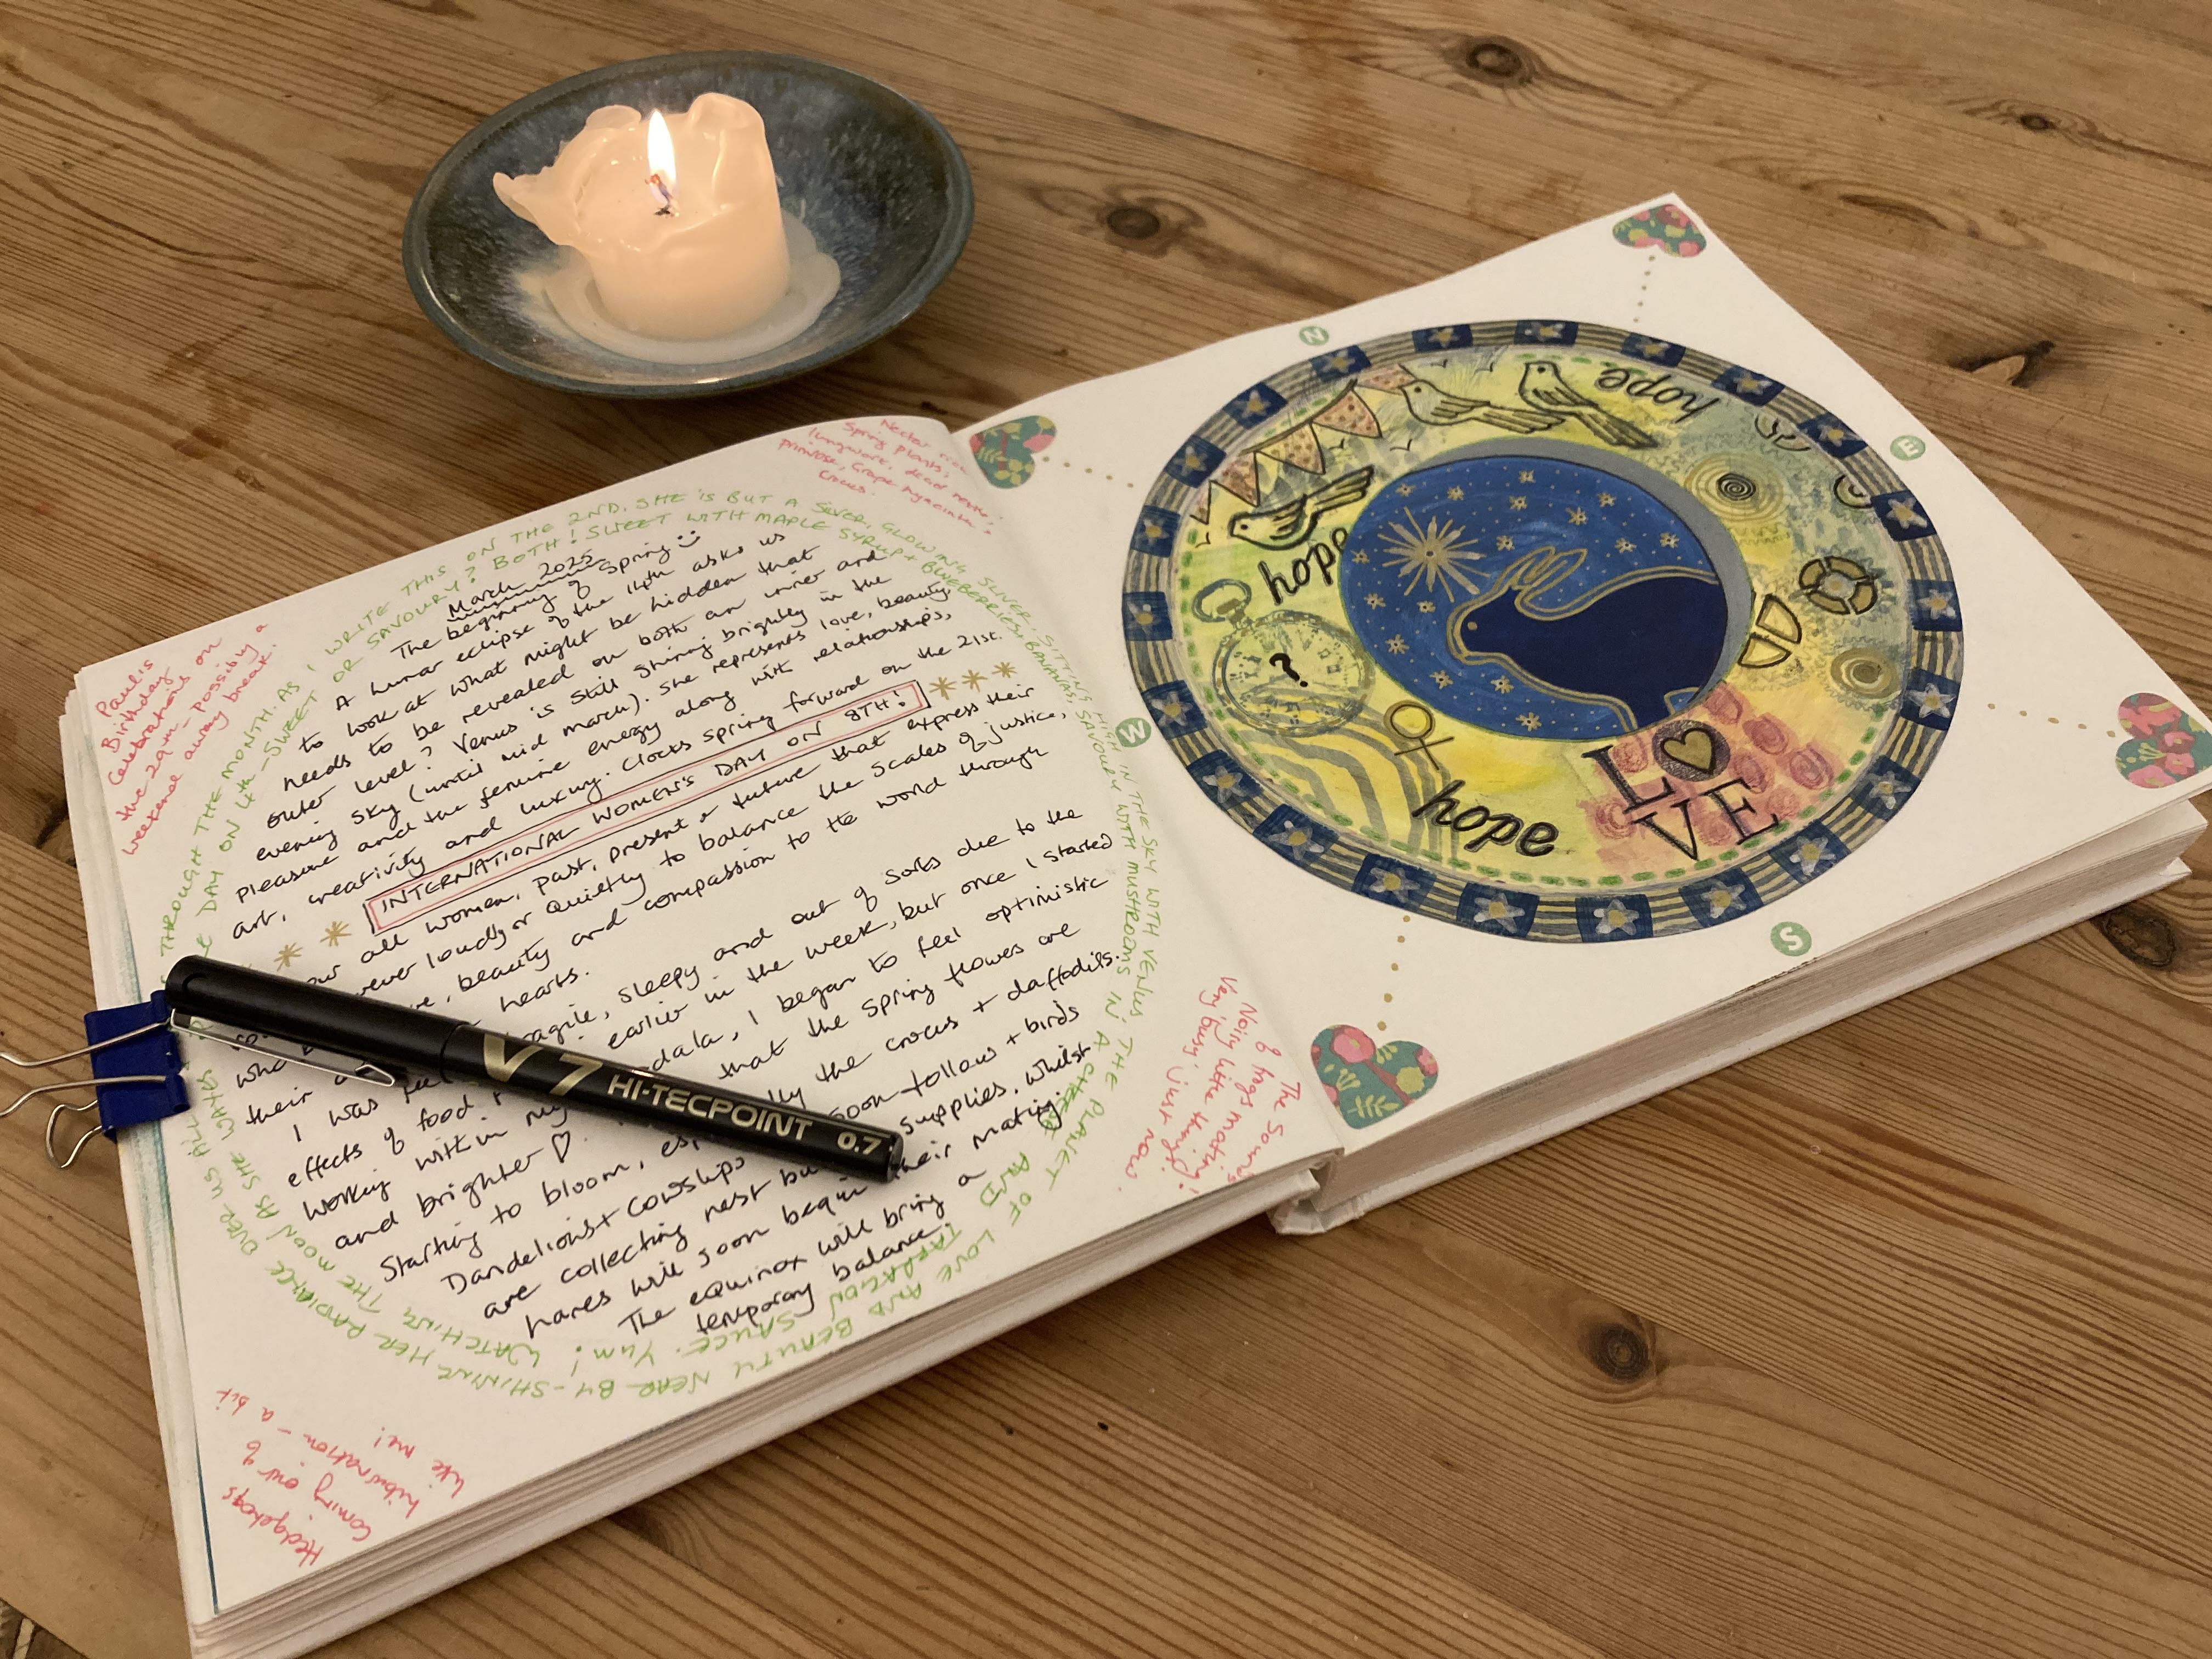 March 2025
The beginning of Spring
A lunar eclipse of the 14th asks us
to look at what might be hidden that
needs to be revealed on both an inner and
outer level? Venus is still shining brightley in the
evening sky (until mid march). She represents love, beauty,
pleasure and the feminine energy along with relationships,
art, creativity and luxury. Clocks spring forward on the 21st.
INTERNATIONAL WOMEN'S DAY ON 8TH!
all women, past, present & future that express their
ever loudly or quietly to balance the scales of justice,
beauty and compassion to the world through
their hearts.
I was fragile, sleepy and out of sorts due to the
effects of food earlier in the week, but once I started
working within my dala, I began to feel optimistic
and brighter ♡. that the spring flowers are
starting to bloom, the crocus + daffodils.
Dandelions + cowslips soon follow + birds
are collecting nest supplies. Whilst
hares will soon begin their mating.
The equinox will bring a
temporary balance.
THROUGH THE MONTH. AS I WRITE THIS ON THE 2ND. SHE IS BUT A SILVER, GLOWING SLIVER, SITTING HIGH IN THE SKY WITH VENUS; THE PLANET OF LOVE AND BEAUTY NEAR BY - SHINING HER RADIANCE OVER US ALL
DAY ON 4th - SWEET OR SAVOURY? BOTH! SWEET WITH MAPLE SYRUP + BLUEBERRIES + BANANAS, SAVOURY WITH MUSHROOMS IN A CHEESE AND TARRAGON SAUCE. YUM! WATCHING THE MOON AS SHE WAXES
Paul's
Birthday
Celebrations on
the 29th - possibly a
weekend away break.
Nectar rich
Spring plants;
lungwort, dead nettle,
primrose, Grape hyacinth,
Crocus.
The Sounds
of frogs mating!
Noisy little things!
Very busy just now.
Hedgehogs
coming out of
hibernation - a bit
like me!
V7 HI-TECPOINT 0.7
N
E
S
W
hope
hope
hope
?
LOVE